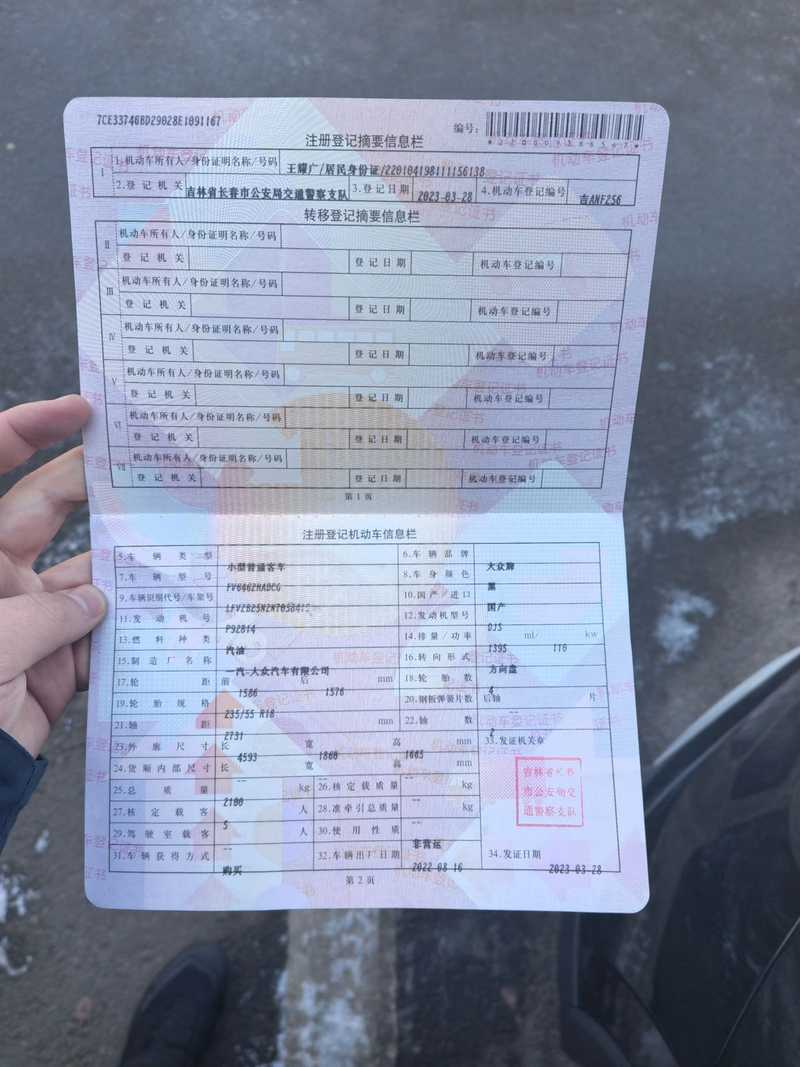 7CE33746BD29028E1091167
编号:
注册登记摘要信息栏
I 1.机动车所有人/身份证明名称/号码 王耀广/居民身份证/220104198111156138
2.登记机关 吉林省长春市公安局交通警察支队 3.登记日期 2023-03-28 4.机动车登记编号 吉ANFZ56
转移登记摘要信息栏
II 机动车所有人/身份证明名称/号码
登记机关 登记日期 机动车登记编号
III 机动车所有人/身份证明名称/号码
登记机关 登记日期 机动车登记编号
IV 机动车所有人/身份证明名称/号码
登记机关 登记日期 机动车登记编号
V 机动车所有人/身份证明名称/号码
登记机关 登记日期 机动车登记编号
VI 机动车所有人/身份证明名称/号码
登记机关 登记日期 机动车登记编号
VII 机动车所有人/身份证明名称/号码
登记机关 登记日期 机动车登记编号
第1页
注册登记机动车信息栏
5.车辆类型 小型普通客车 6.车辆品牌 大众牌
7.车辆型号 8.车身颜色 黑
9.车辆识别代号/车架号 10.国产/进口 国产
11.发动机号 P92814 12.发动机型号 DJS
13.燃料种类 汽油 14.排量/功率 1395 ml/ 110 kw
15.制造厂名称 一汽-大众汽车有限公司 16.转向形式 方向盘
17.轮距 前 1586 后 1576 mm 18.轮胎数 4
19.轮胎规格 235/55 R18 20.钢板弹簧片数 后轴 -- 片
21.轴距 2731 mm 22.轴数 2
23.外廓尺寸 长 4593 宽 1860 高 1665 mm 33.发证机关章
24.货厢内部尺寸 长 -- 宽 -- 高 -- mm
25.总质量 2100 kg 26.核定载质量 -- kg
27.核定载客 5 人 28.准牵引总质量 -- kg
29.驾驶室载客 -- 人 30.使用性质 非营运
31.车辆获得方式 购买 32.车辆出厂日期 2022-08-16 34.发证日期 2023-03-28
吉林省长春
市公安局交
通警察支队
第2页